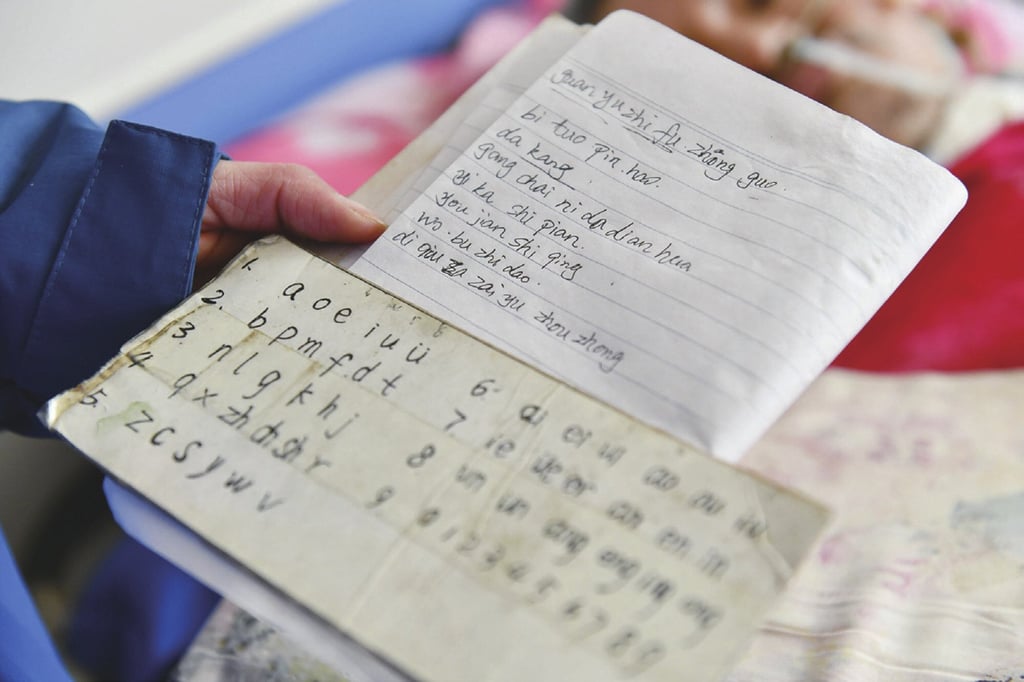 guan yu zhi fu zhong guo.
bi tuo pin hao.
da kang.
gang chai ni da dian hua
yi ka shi pian.
you jian shi qing
wo bu zhi dao.
di qiu zai yu zhou zhong
1. a o e i u ü
2. b p m f d t
3. n l g k h j
4. q x zh ch sh r
5. z c s y w v
6. ai ei ui ao ou iu
7 ie üe er an en in
8 un ün ang eng ing ong
9 0 1 2 3 4 5 6 7 8 9